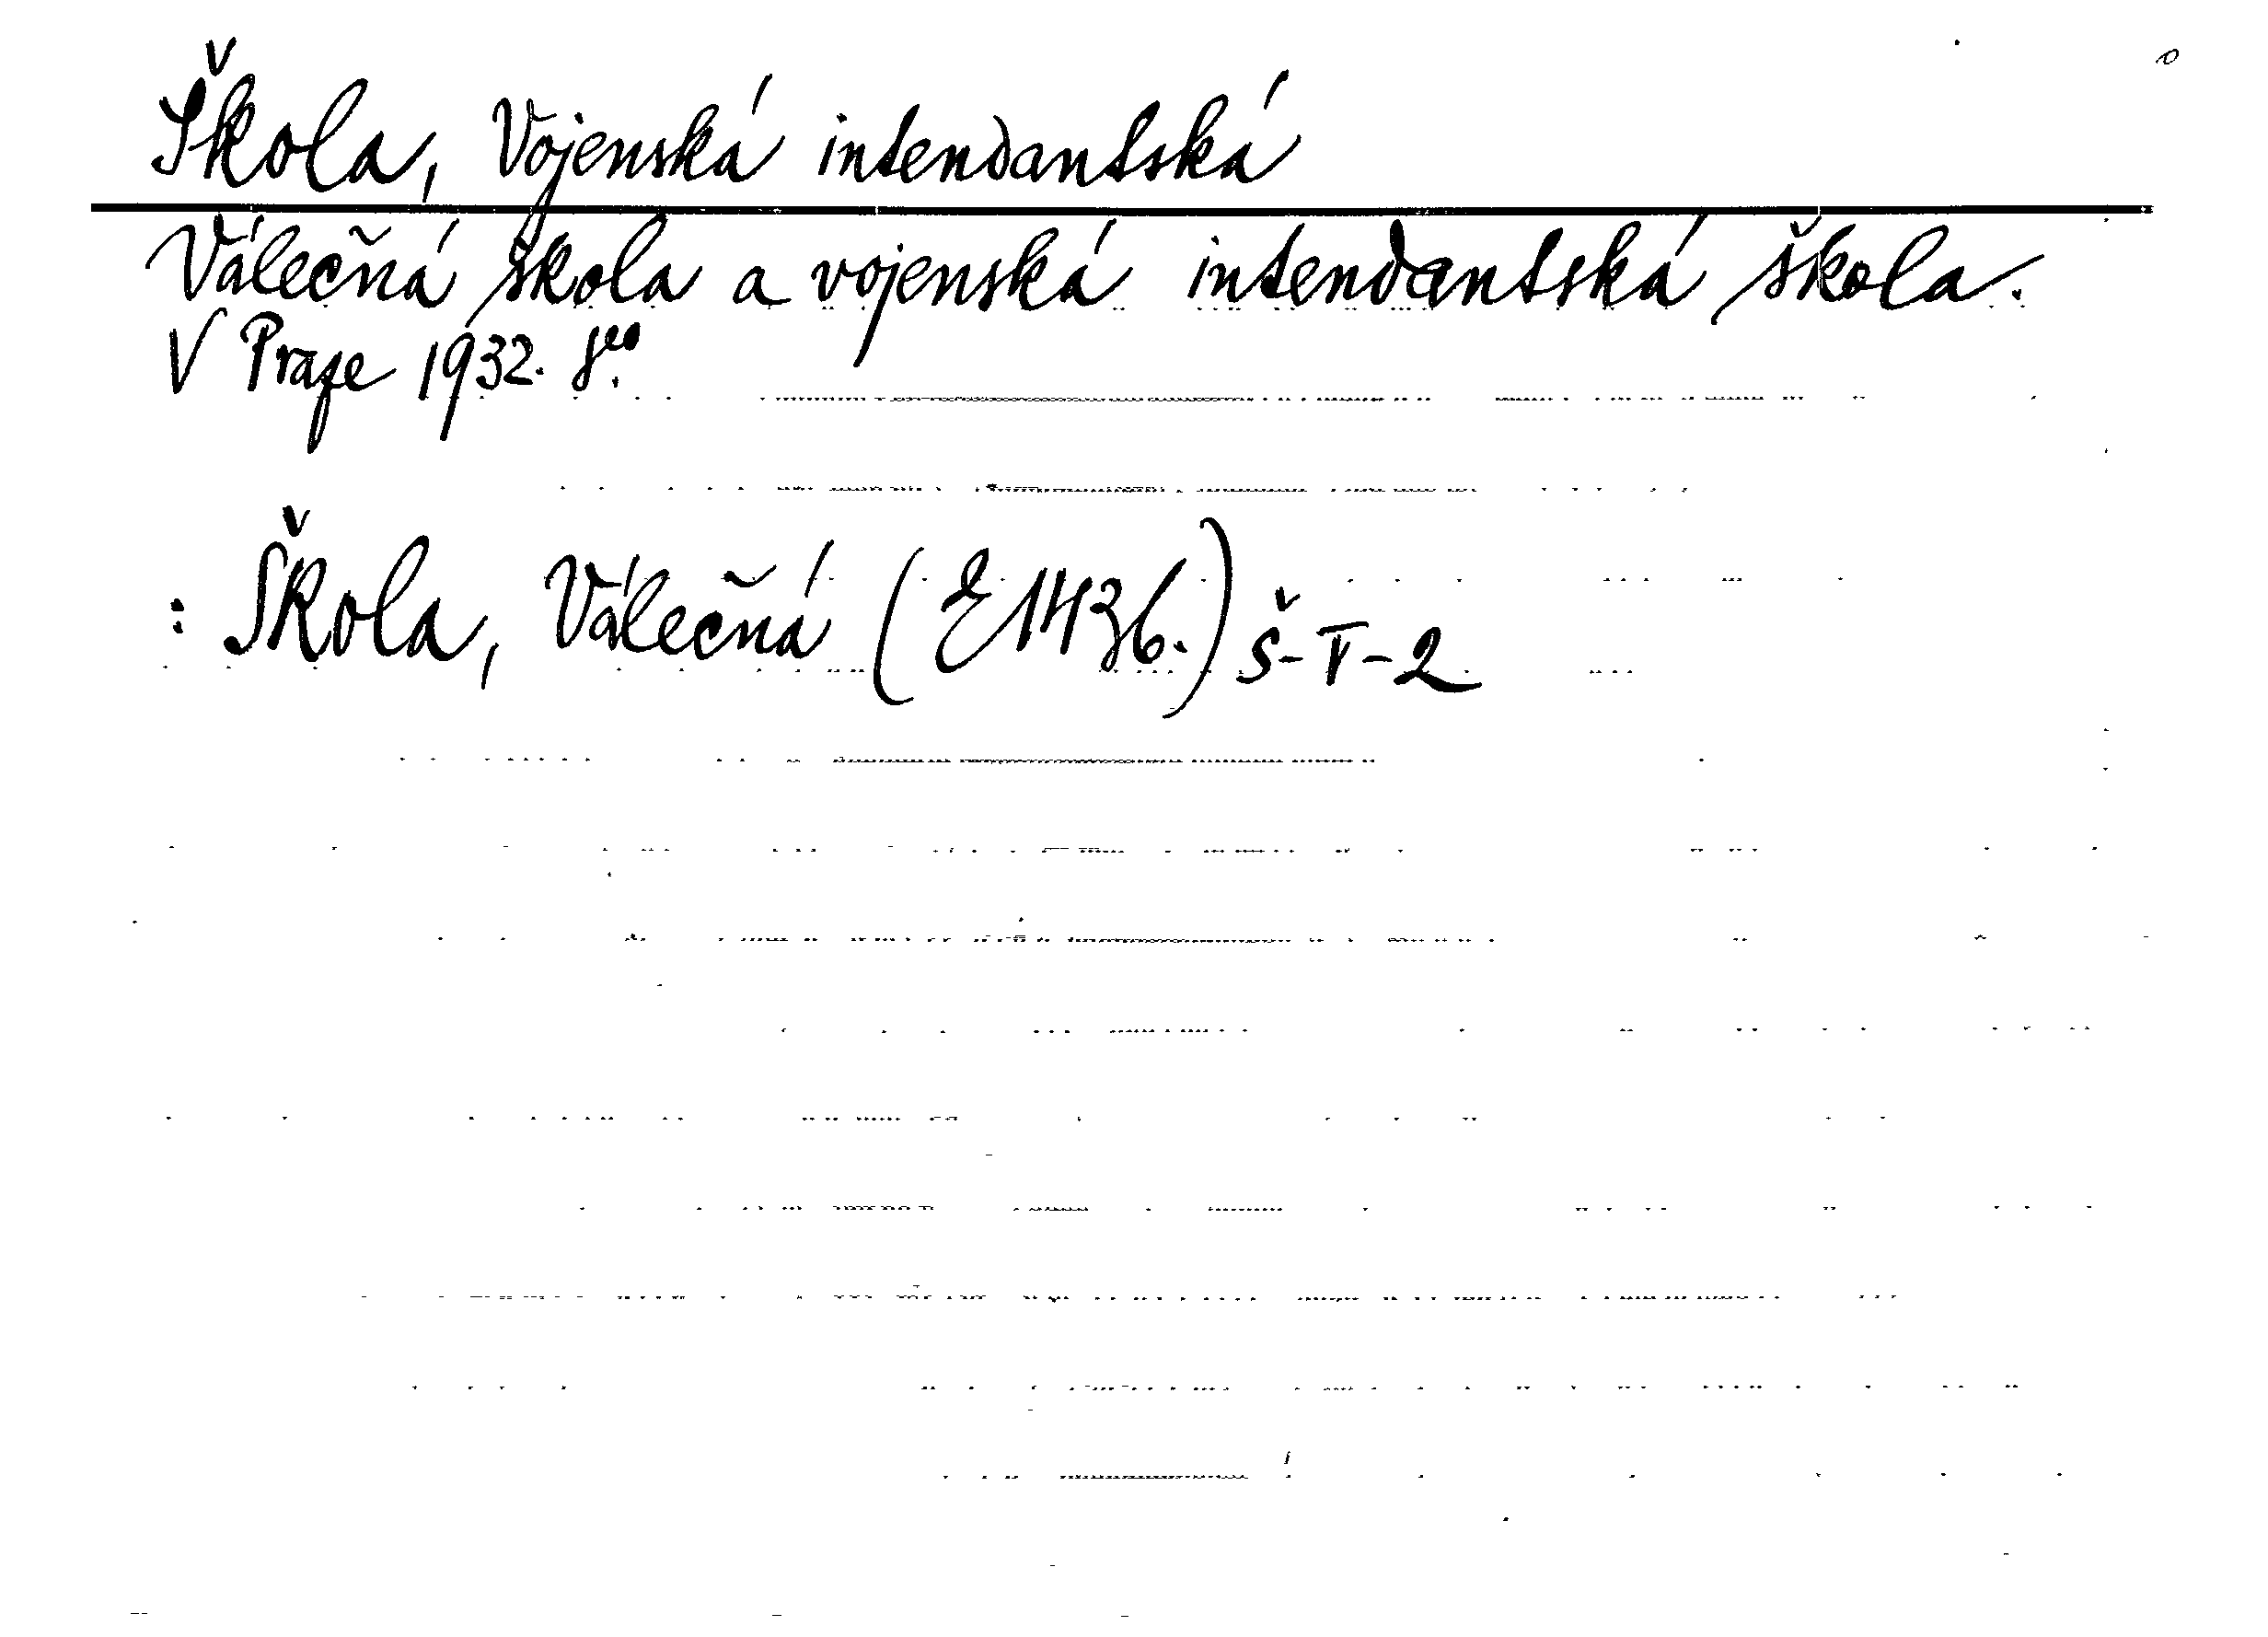 Škola, Vojenská intendantská
Válečná škola a vojenská intendantská škola.
V Praze 1932. 8º.
: Škola, Válečná (E1436.) Š-V-2